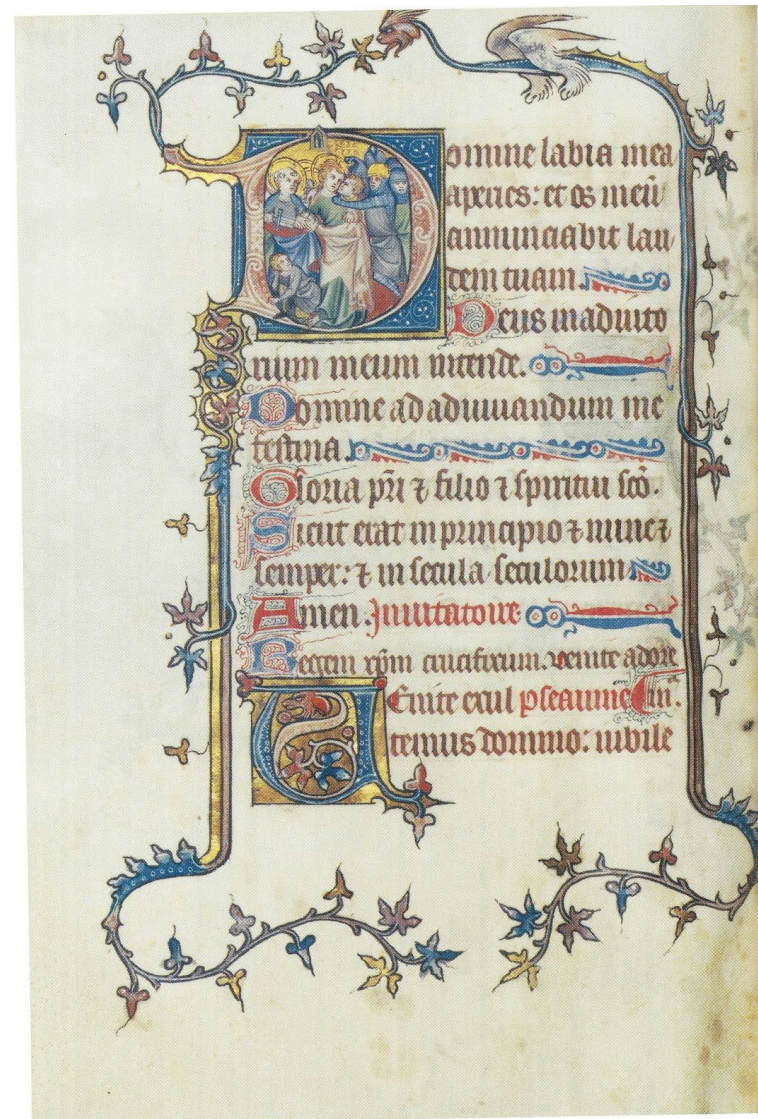 Domine labia mea
aperies: et os meū
annunciabit lau
dem tuam.
Deus in adiuto
rium meum intende.
Domine ad adiuuandum me
festina.
Gloria pr̄i ⁊ filio ⁊ spiritui sc̄o.
Sicut erat in principio ⁊ nunc ⁊
semper: ⁊ in secula seculorum
Amen. Inuitatoire
Regem xp̄m crucifixum. uenite adore
Uenite exul pseaume tm̄.
temus domino: iubile